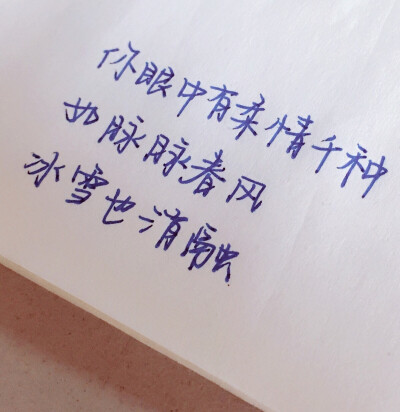 你眼中有柔情千种
如脉脉春风
冰雪也消融